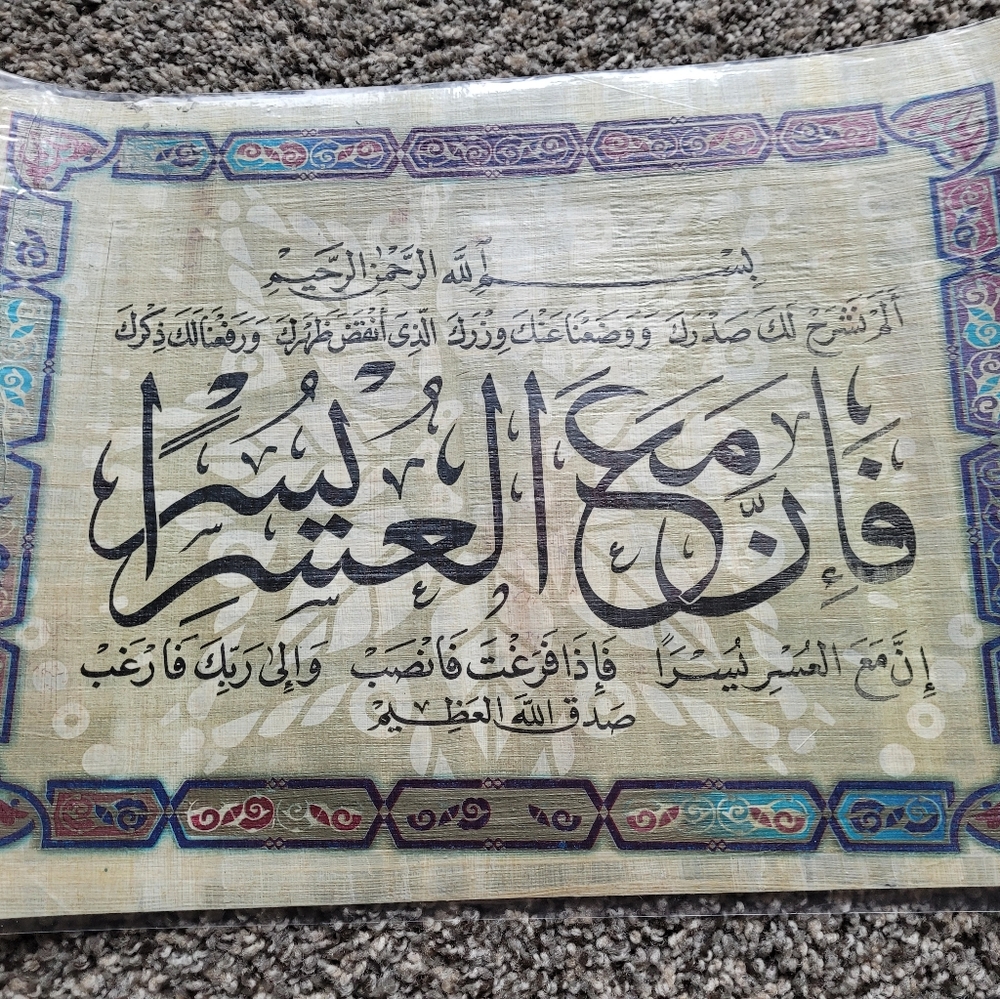 بِسْمِ اللَّهِ الرَّحْمٰنِ الرَّحِيمِ
أَلَمْ نَشْرَحْ لَكَ صَدْرَكَ وَوَضَعْنَا عَنْكَ وِزْرَكَ الَّذِي أَنْقَضَ ظَهْرَكَ وَرَفَعْنَا لَكَ ذِكْرَكَ
فَإِنَّ مَعَ الْعُسْرِ يُسْرًا
إِنَّ مَعَ الْعُسْرِ يُسْرًا فَإِذَا فَرَغْتَ فَانْصَبْ وَإِلَىٰ رَبِّكَ فَارْغَبْ
صَدَقَ اللَّهُ الْعَظِيمُ